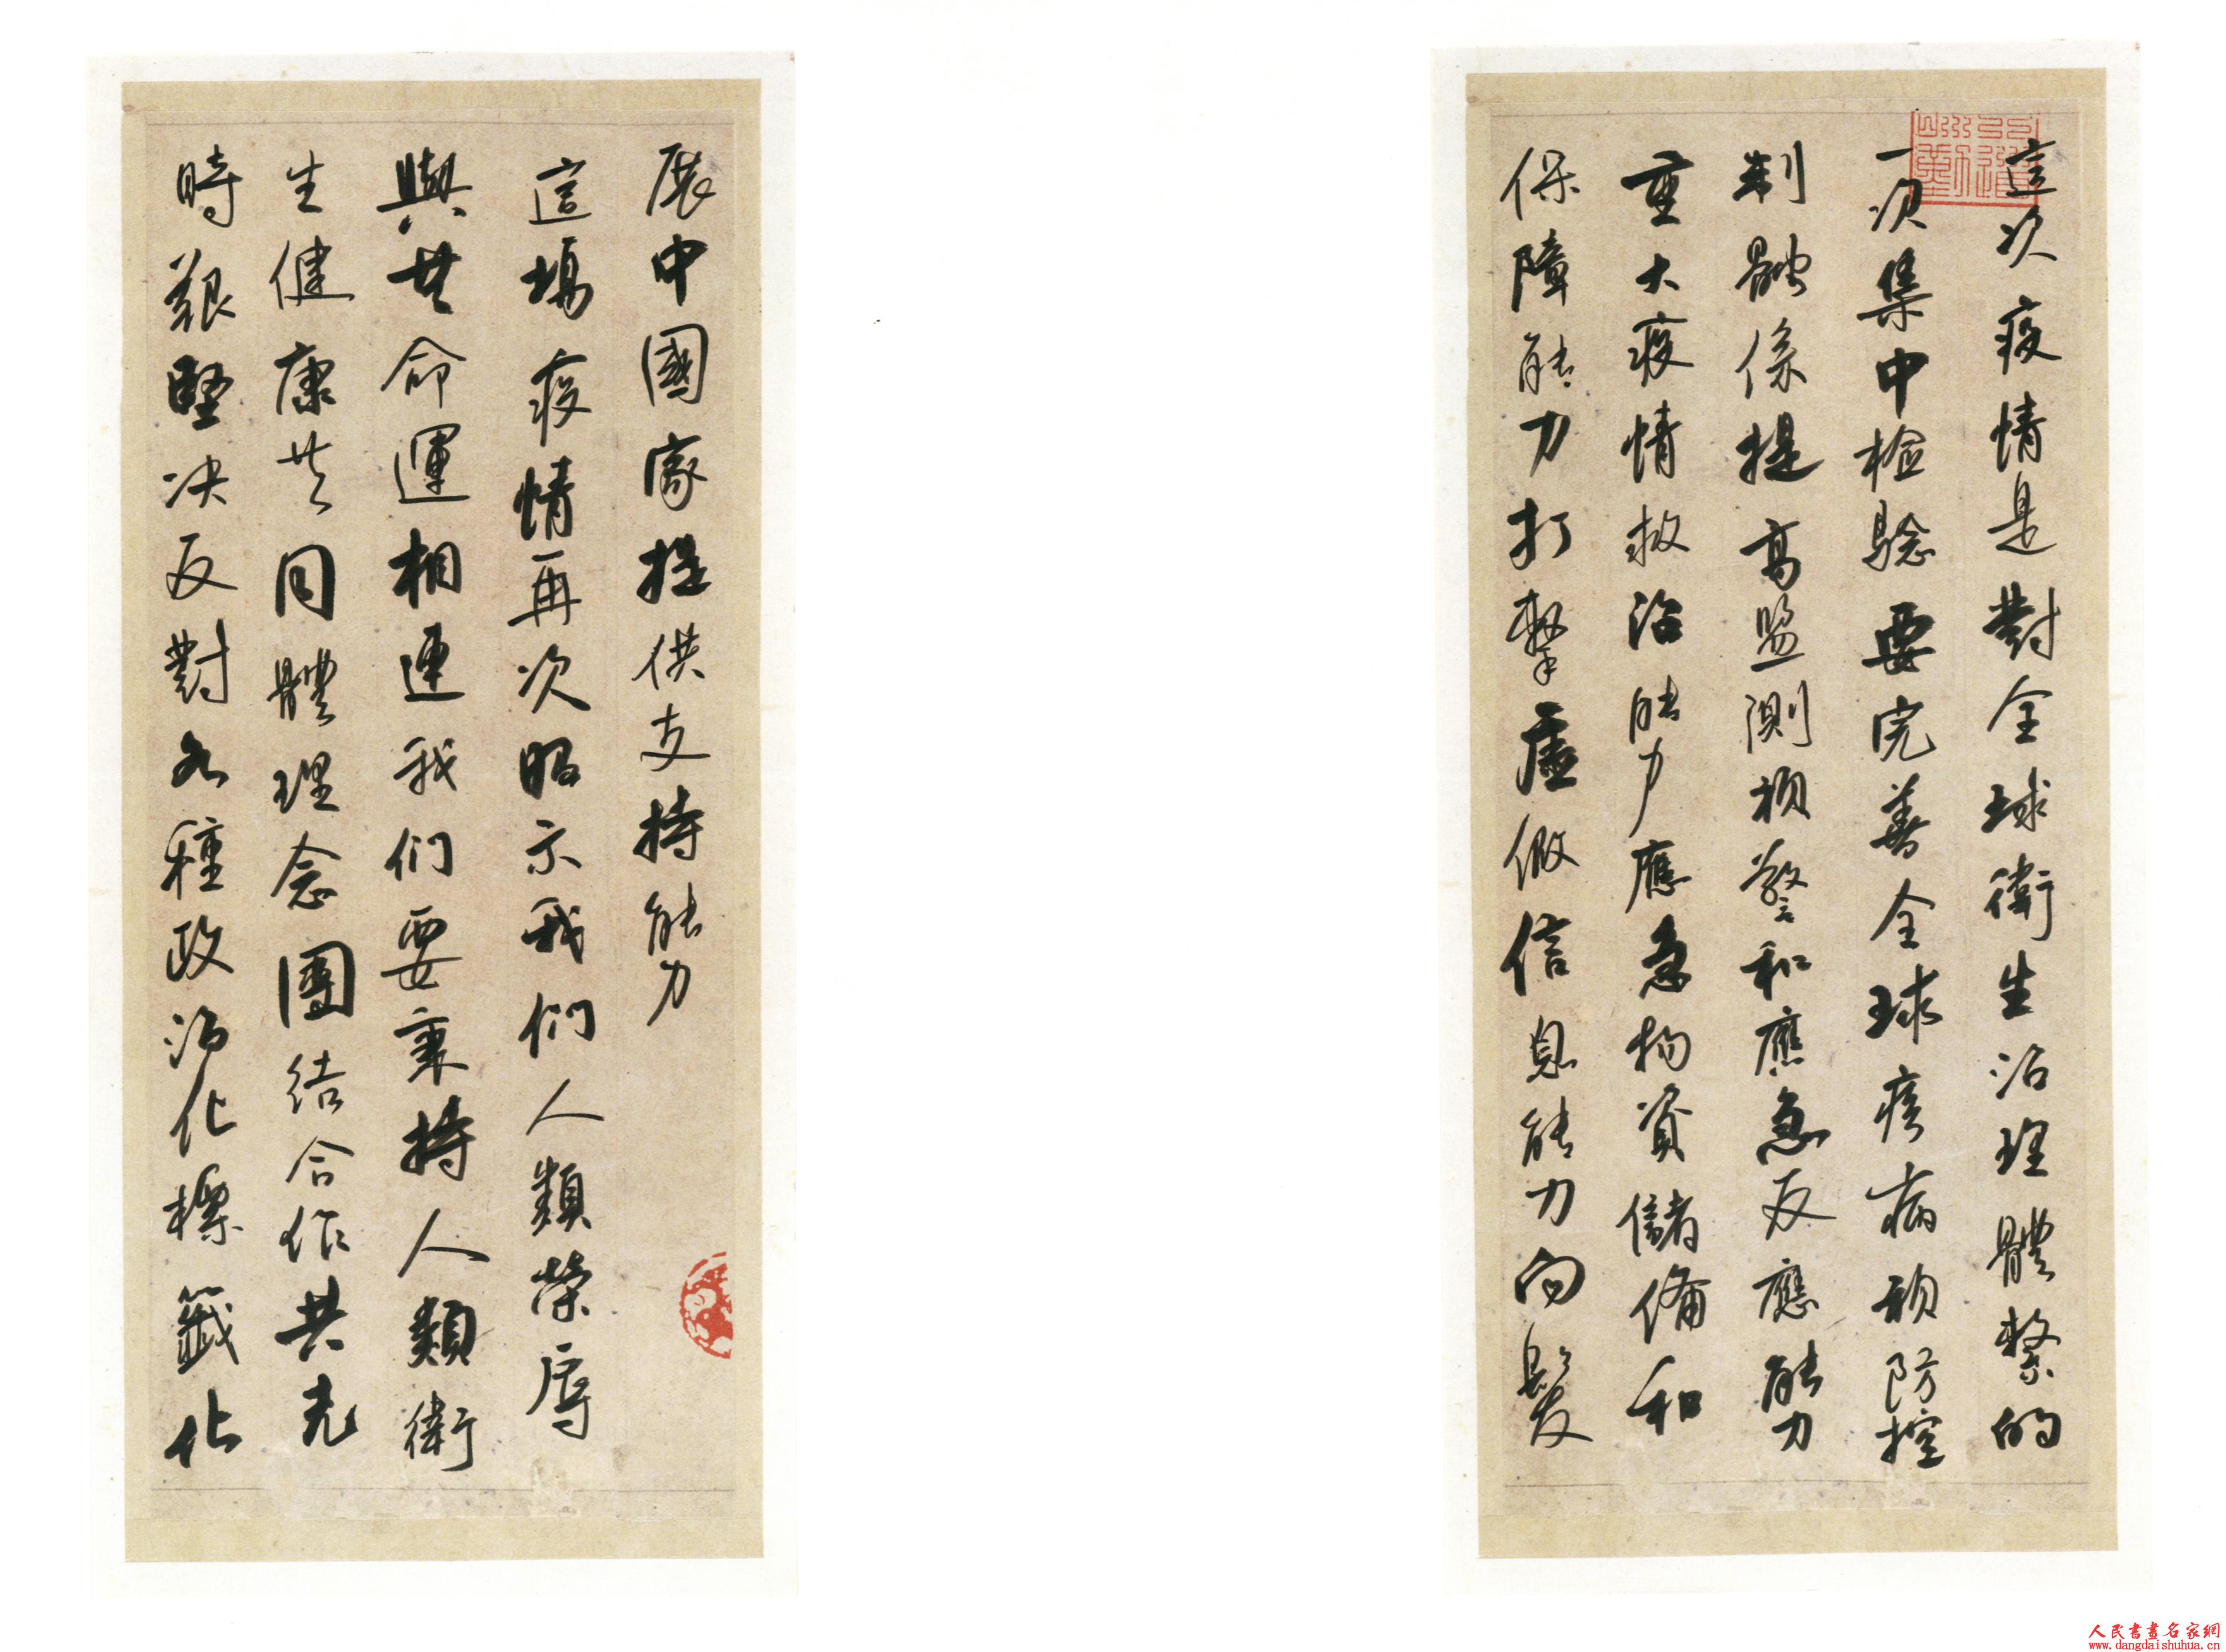 這次疫情是對全球衛生治理體繫的
一次集中檢驗要完善全球疾病預防控
制體係提高監測預警和應急反應能力
重大疫情救治能力應急物資儲備和
保障能力打擊虛假信息能力向發
展中國家提供支持能力
這場疫情再次昭示我們人類榮辱
與共命運相連我们要秉持人類衛
生健康共同體理念團结合作共克
時艱堅决反對各種政治化標籤化
人民書畫名家網
www.dangdaishuhua.cn